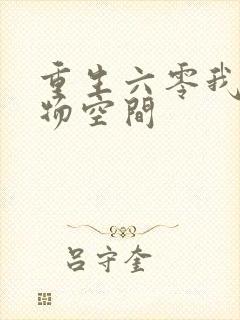 重生六零我
物空間
吕守奎